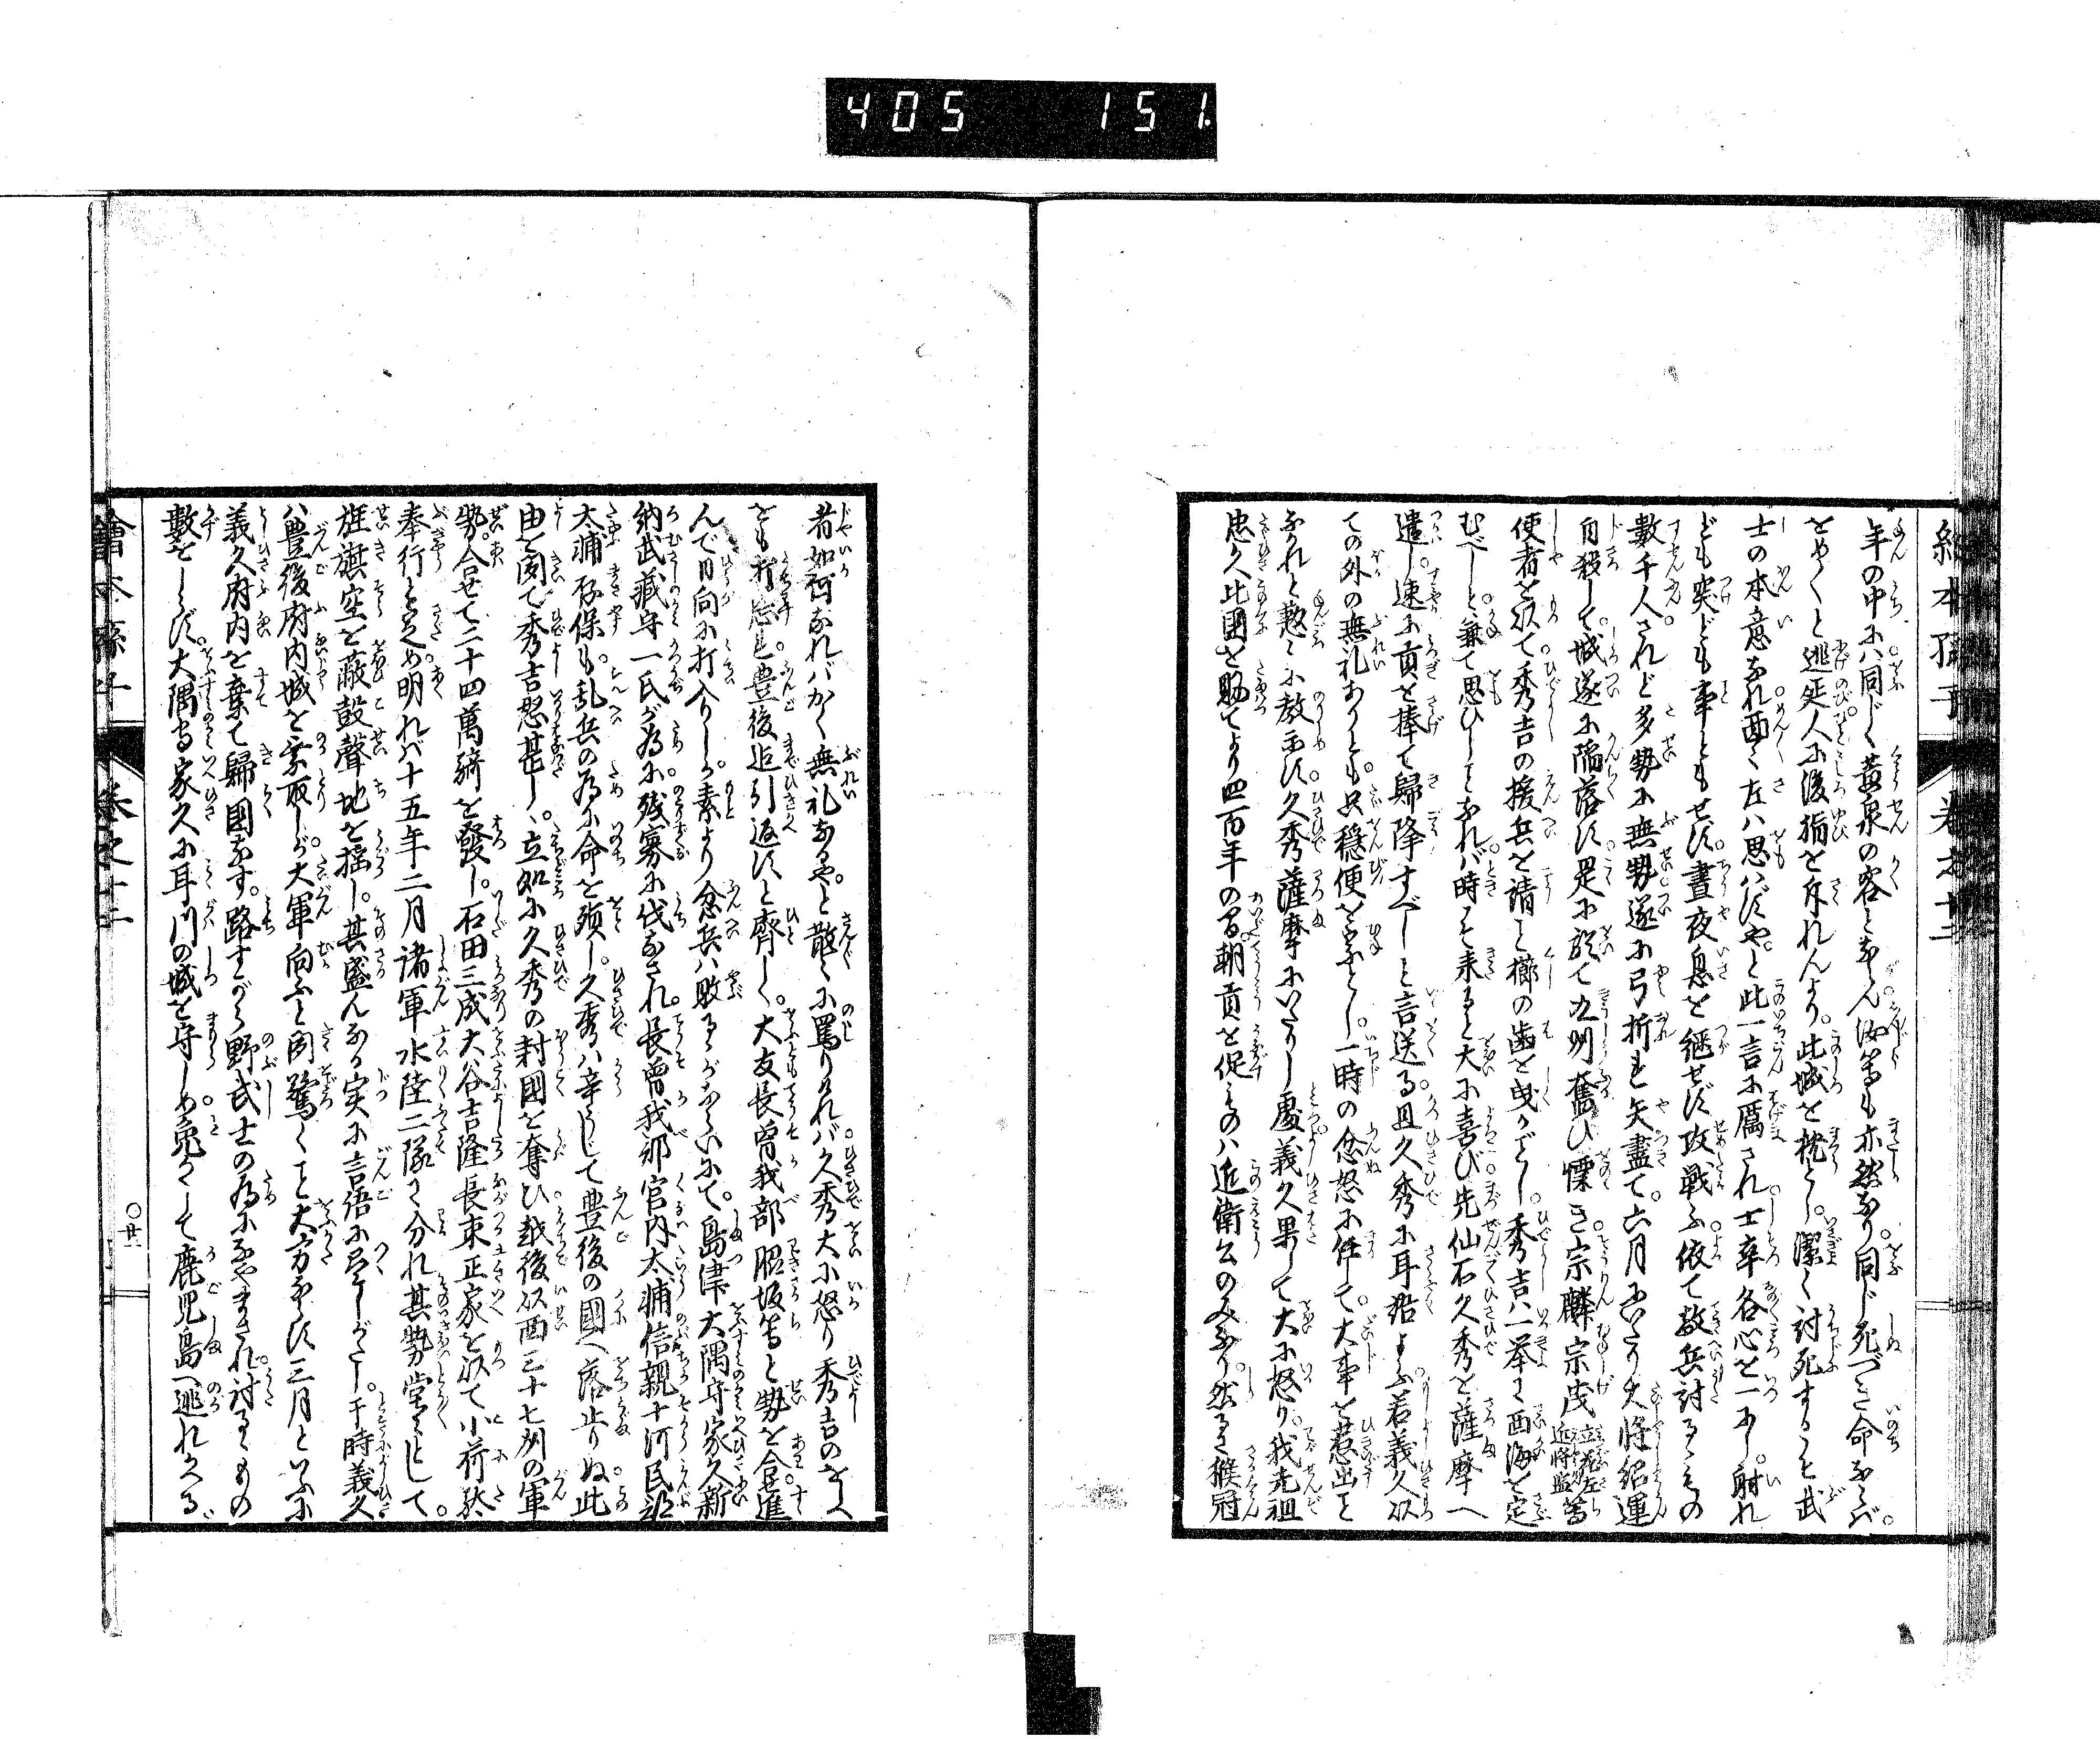 405 151
年の中には同じく黄泉の客とならん汝等も亦然なり同じ死べき命ならば。
をめ〳〵と逃延人に後指を斥れんより。此城を枕とし。潔く討死すること武
士の本意なれ面〻左は思はずや。と此一言に厲され士卒各心を一にし。射れ
ども突ども事ともせず。晝夜息を継せず攻戦ふ依て敵兵討るゝもの
數千人。されど多勢に無勢遂に弓折き矢盡て。六月にいたり大将紹運
自殺して。城遂に陥落す是に於て九州奮ひ慄き。宗麟宗茂立花左近将監等
使者を以て秀吉の援兵を請こと櫛の歯を曳がごとし。秀吉ハ一挙て西海を定
むべしと兼て思ひしことなれバ時こそ来ると大に喜び先仙石久秀を薩摩へ
遣し。速に貢を捧て歸降すべしと言送る。且久秀に耳語よふ若義久以
ての外の無礼ありとも。只穏便を宗とし。一時の忿怒に任して。大事を惹出こと
なかれと懇に教示す。久秀薩摩にいたりし處義久果して大に怒り。我先祖
忠久此國を賜てより四百年の間朝貢を促ものハ近衛公のみなり。然るを猴冠
者如何なればかく無礼なるや。と散〻に罵りけれバ久秀大に怒り秀吉のをしへ
をも打忘れ。豊後迄引返すと齊しく。大友長曽我部脇坂等と勢を合進
んで日向に打入りしが。素より忿兵ハ敗るゝがならひにて。島津大隅守家久新
納武蔵守一氏が為に残寡に伐なされ。長曽我部官内太浦信親十河民部
太浦存保も乱兵の為に命を殞し。久秀ハ辛うじて豊後の國へ落止りぬ此
由を聞て秀吉怒甚し。立処に久秀の封國を奪ひ越後以西三十七州の軍
勢。合せて二十四萬騎を發し。石田三成大谷吉隆長束正家を以て小荷駄
奉行と定め明れバ十五年二月諸軍水陸二隊に分れ其勢堂〻として。
旌旗空を蔽鼓聲地を揺し。其盛んなる実に言語に尽しがたし。干時義久
ハ豊後府内城を乗取しが。大軍向ふと聞驚くこと大方ならず三月といふに
義久府内を棄て歸國なす。路すがら野武士の為になやまされ。討るゝもの
數をしらず。大隅守家久に耳川の城を守しめ兎角して鹿児島へ逃れかへる
繪本孫子 卷之十二
〇廿一